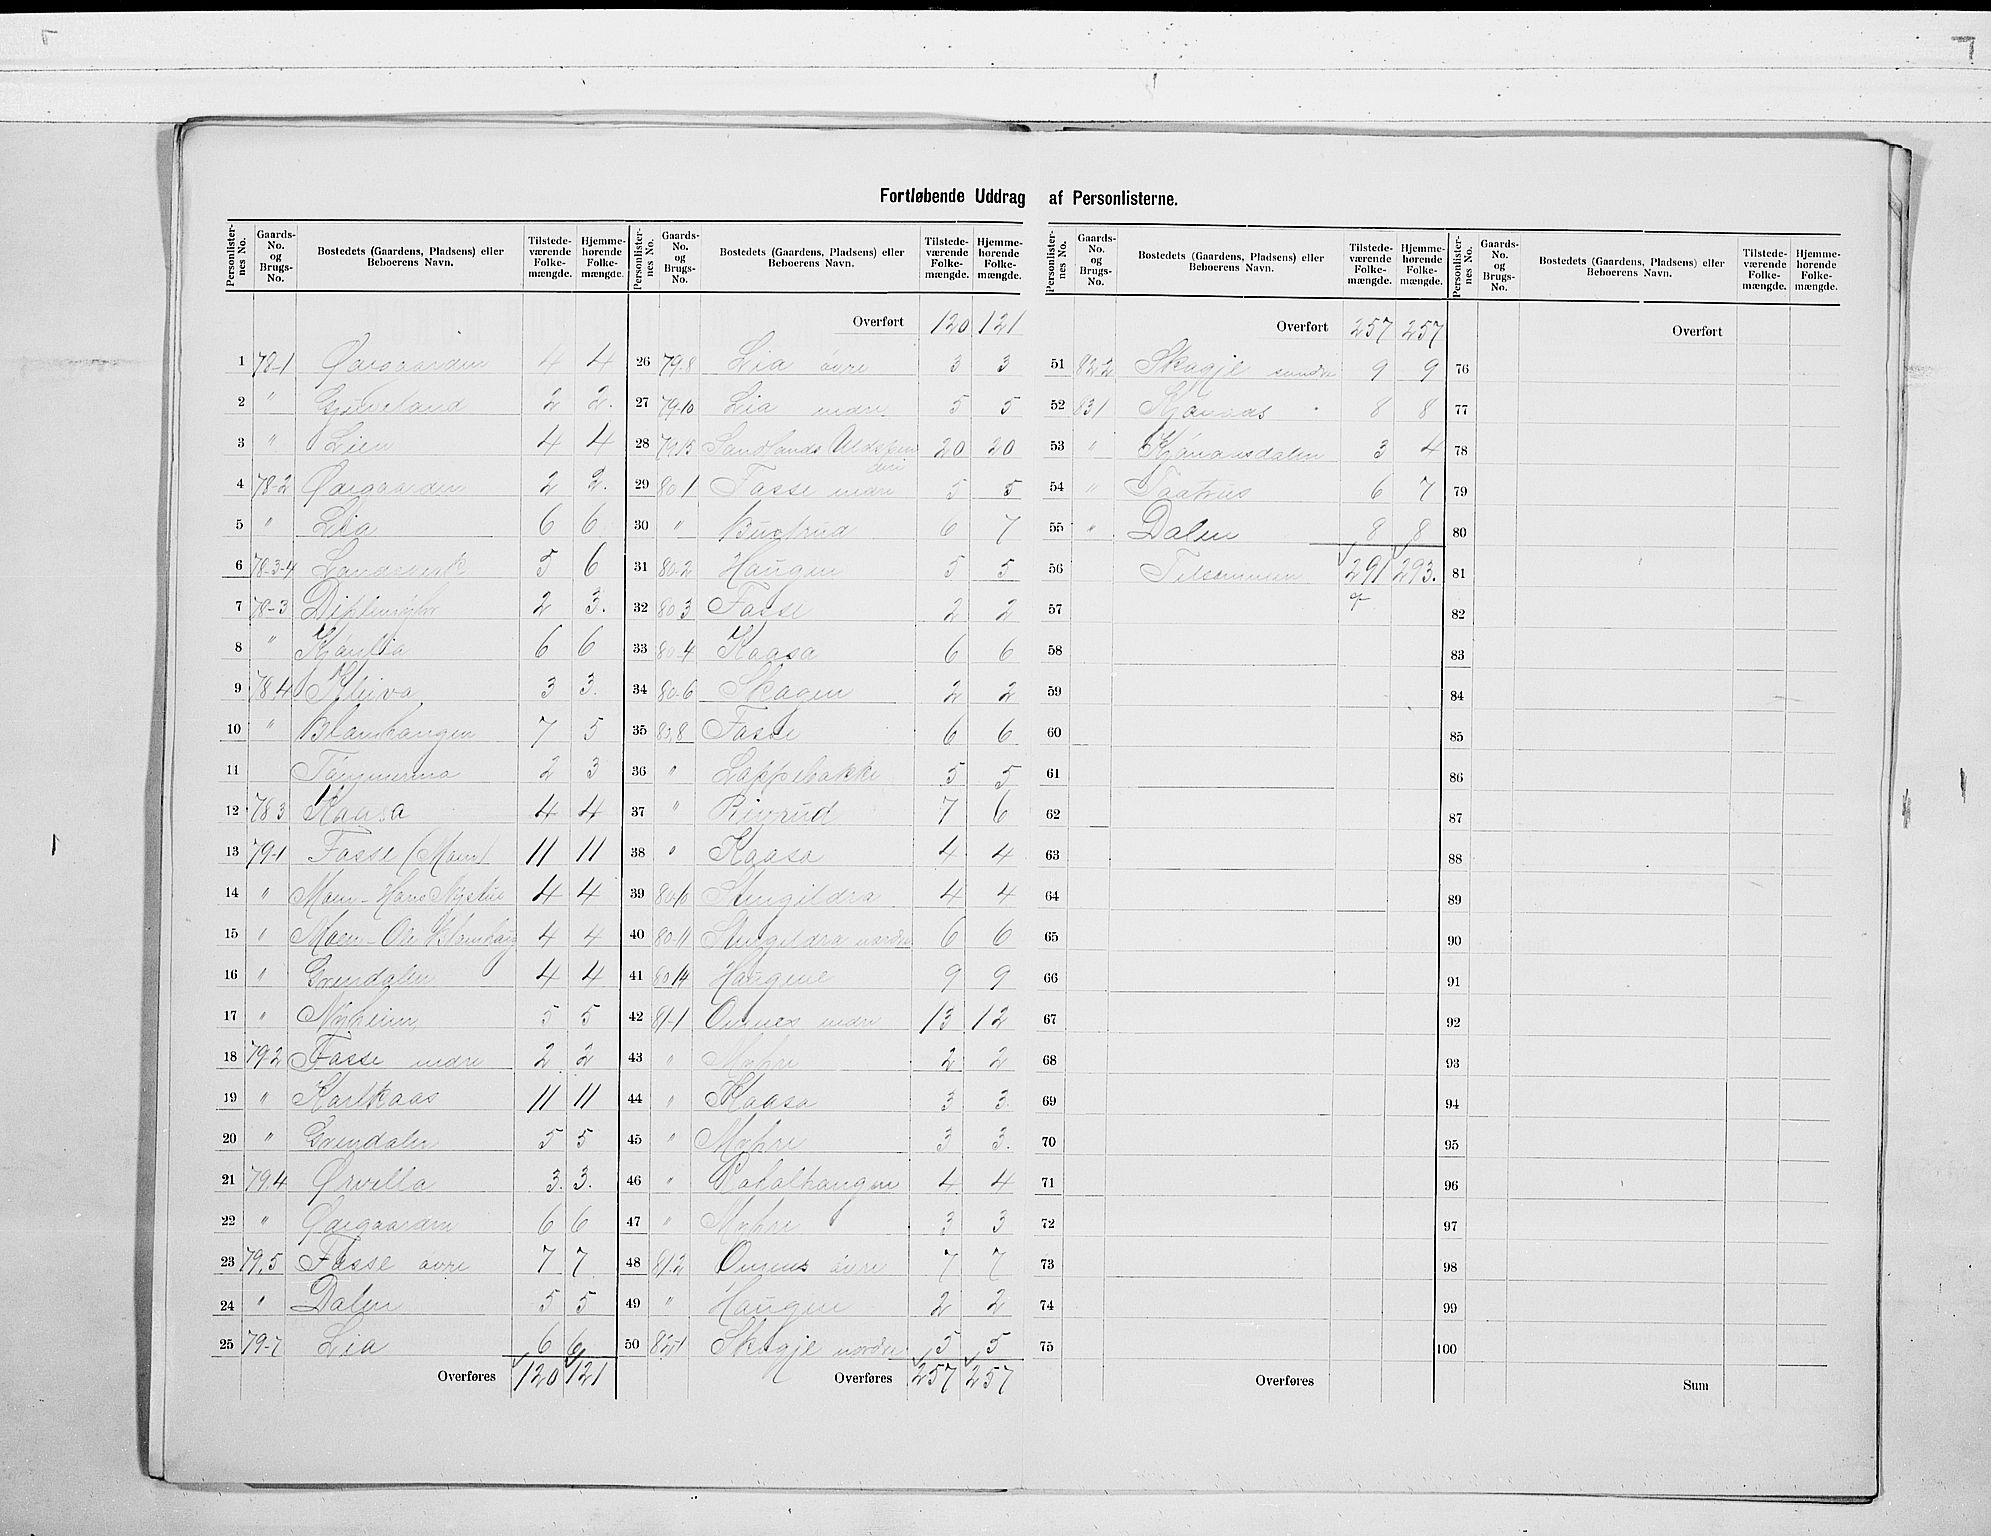 Fortløbende Uddrag af Personlisterne.
Personlister-nes No. Gaards-No. og Brugs-No. Bostedets (Gaardens, Pladsens) eller Beboerens Navn. Tilstede-værende Folke-mængde. Hjemme-hørende Folke-mængde.
1 78-1 Øaegaarden 4 4
2 " Grueveland 2 2.
3 " Lien 4 4
4 78-2 Øaegaarden 2 2.
5 " Lia 6 6
6 78-3-4 Landsverk 5 6
7 78-3 2 3.
8 " 6 6
9 78.4 Kleiva 3 3.
10 " Blomhaugen 7 5
11 2 3
12 78.3 Kaasa 4 4
13 79-1 Fosse (Moen) 11 11
14 " Moen - Hans Nystue 4 4
15 " Moen - Ole Blomhaug 4 4
16 " Grendalen 4 4
17 " Nyheim 5 5
18 79-2 Fosse nedre 2 2
19 " Karlkaas 11 11
20 " Grendalen 5 5
21 79.4 Ørvella 3. 3.
22 " Øaegaarden 6 6
23 79.5 Fosse øvre 7 7
24 " Dalen 5 5
25 79-7 Lia 6 6
Overføres 120 121
Personlister-nes No. Gaards-No. og Brugs-No. Bostedets (Gaardens, Pladsens) eller Beboerens Navn. Tilstede-værende Folke-mængde. Hjemme-hørende Folke-mængde.
Overført 120 121
26 79.8 Lia øvre 3 3
27 79.10 Lia nedre 5 5
28 79.15 Sandlands Uldspinderi 20 20
29 80.1 Fosse nedre 5 5
30 " 6 7
31 80.2 Haugen 5 5
32 80.3 Fosse 2 2
33 80.4 Kaasa 6 6
34 80.6 Skogen 2 2
35 80.8 Fosse 6 6
36 " Lappebakke 5 5
37 " 7 6
38 " Kaasa 4 4
39 80.10 Stengildra 4 4
40 80.11 Stengildra nordre 6 6
41 80.14 Haugene 9 9
42 81-1 Omnes nedre 13 12
43 " Myhre 2 2
44 " Kaasa 3 3.
45 " Myhre 3 3.
46 " 4 4
47 " Myhre 3 3
48 81.2 Omnes øvre 7 7
49 " Haugen 2 2
50 82-1 Skogje nordre 5 5
Overføres 257 257
Personlister-nes No. Gaards-No. og Brugs-No. Bostedets (Gaardens, Pladsens) eller Beboerens Navn. Tilstede-værende Folke-mængde. Hjemme-hørende Folke-mængde.
Overført 257 257
51 82.2 Skogje søndre 9 9
52 83.1 8 8
53 " 3 4
54 " Taatrus 6 7
55 " Dalen 8 8
56 Tilsammen 291 293.
57
58
59
60
61
62
63
64
65
66
67
68
69
70
71
72
73
74
75
Overføres
Personlister-nes No. Gaards-No. og Brugs-No. Bostedets (Gaardens, Pladsens) eller Beboerens Navn. Tilstede-værende Folke-mængde. Hjemme-hørende Folke-mængde.
Overført
76
77
78
79
80
81
82
83
84
85
86
87
88
89
90
91
92
93
94
95
96
97
98
99
100
Sum